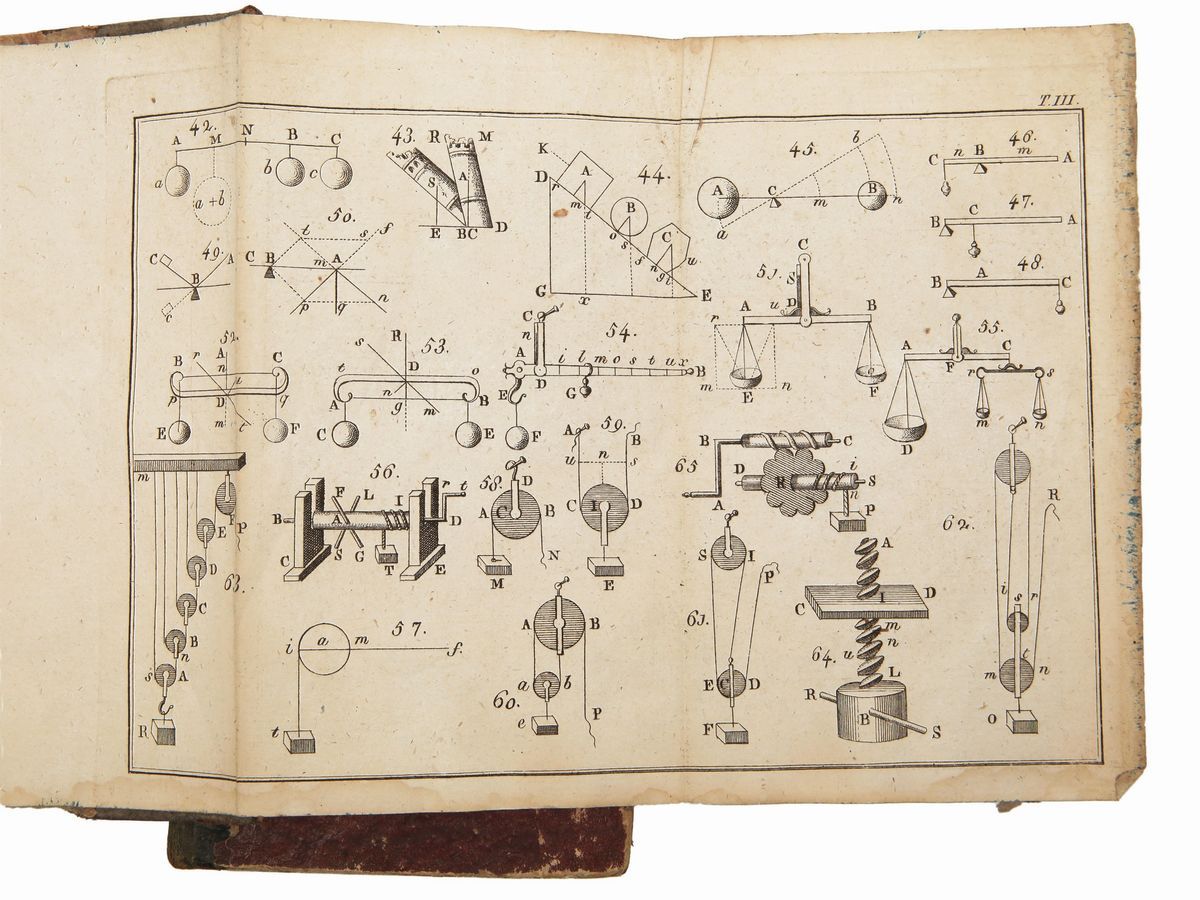 T.III.
42.
A M N B C
a b c
a+b
43.
R M
S A
E BC D
44.
K
D r A
m t B
o s f C
n g i u
G x E
45.
b
A C B
m n
a
46.
C n B m A
47.
B C A
48.
B A C
49.
C A
B
c
50.
t s f
C B m A
p q n
51.
C
S
A u D B
r
m n
E F
52.
A
B r n C
u
p D q
m t
E F
53.
R
s
t D o
n
A g m B
C E
54.
C
n
A i l m o s t u x B
E D G
F
55.
A C
F
r s
m n
D
56.
F L I r t
B A D
C S G T E
57.
i a m f.
t
58.
D
A C B
N
M
59.
A B
u n s
C I D
E
60.
A B
a b
e P
61.
S I
P
E C D
F
62.
R
i s r
t
m n
O
63.
m
F P
E
D
C
B
n
s A
R
64.
A
C I D
m
u n
L
R B S
65
B C
D i
R S
n
A P